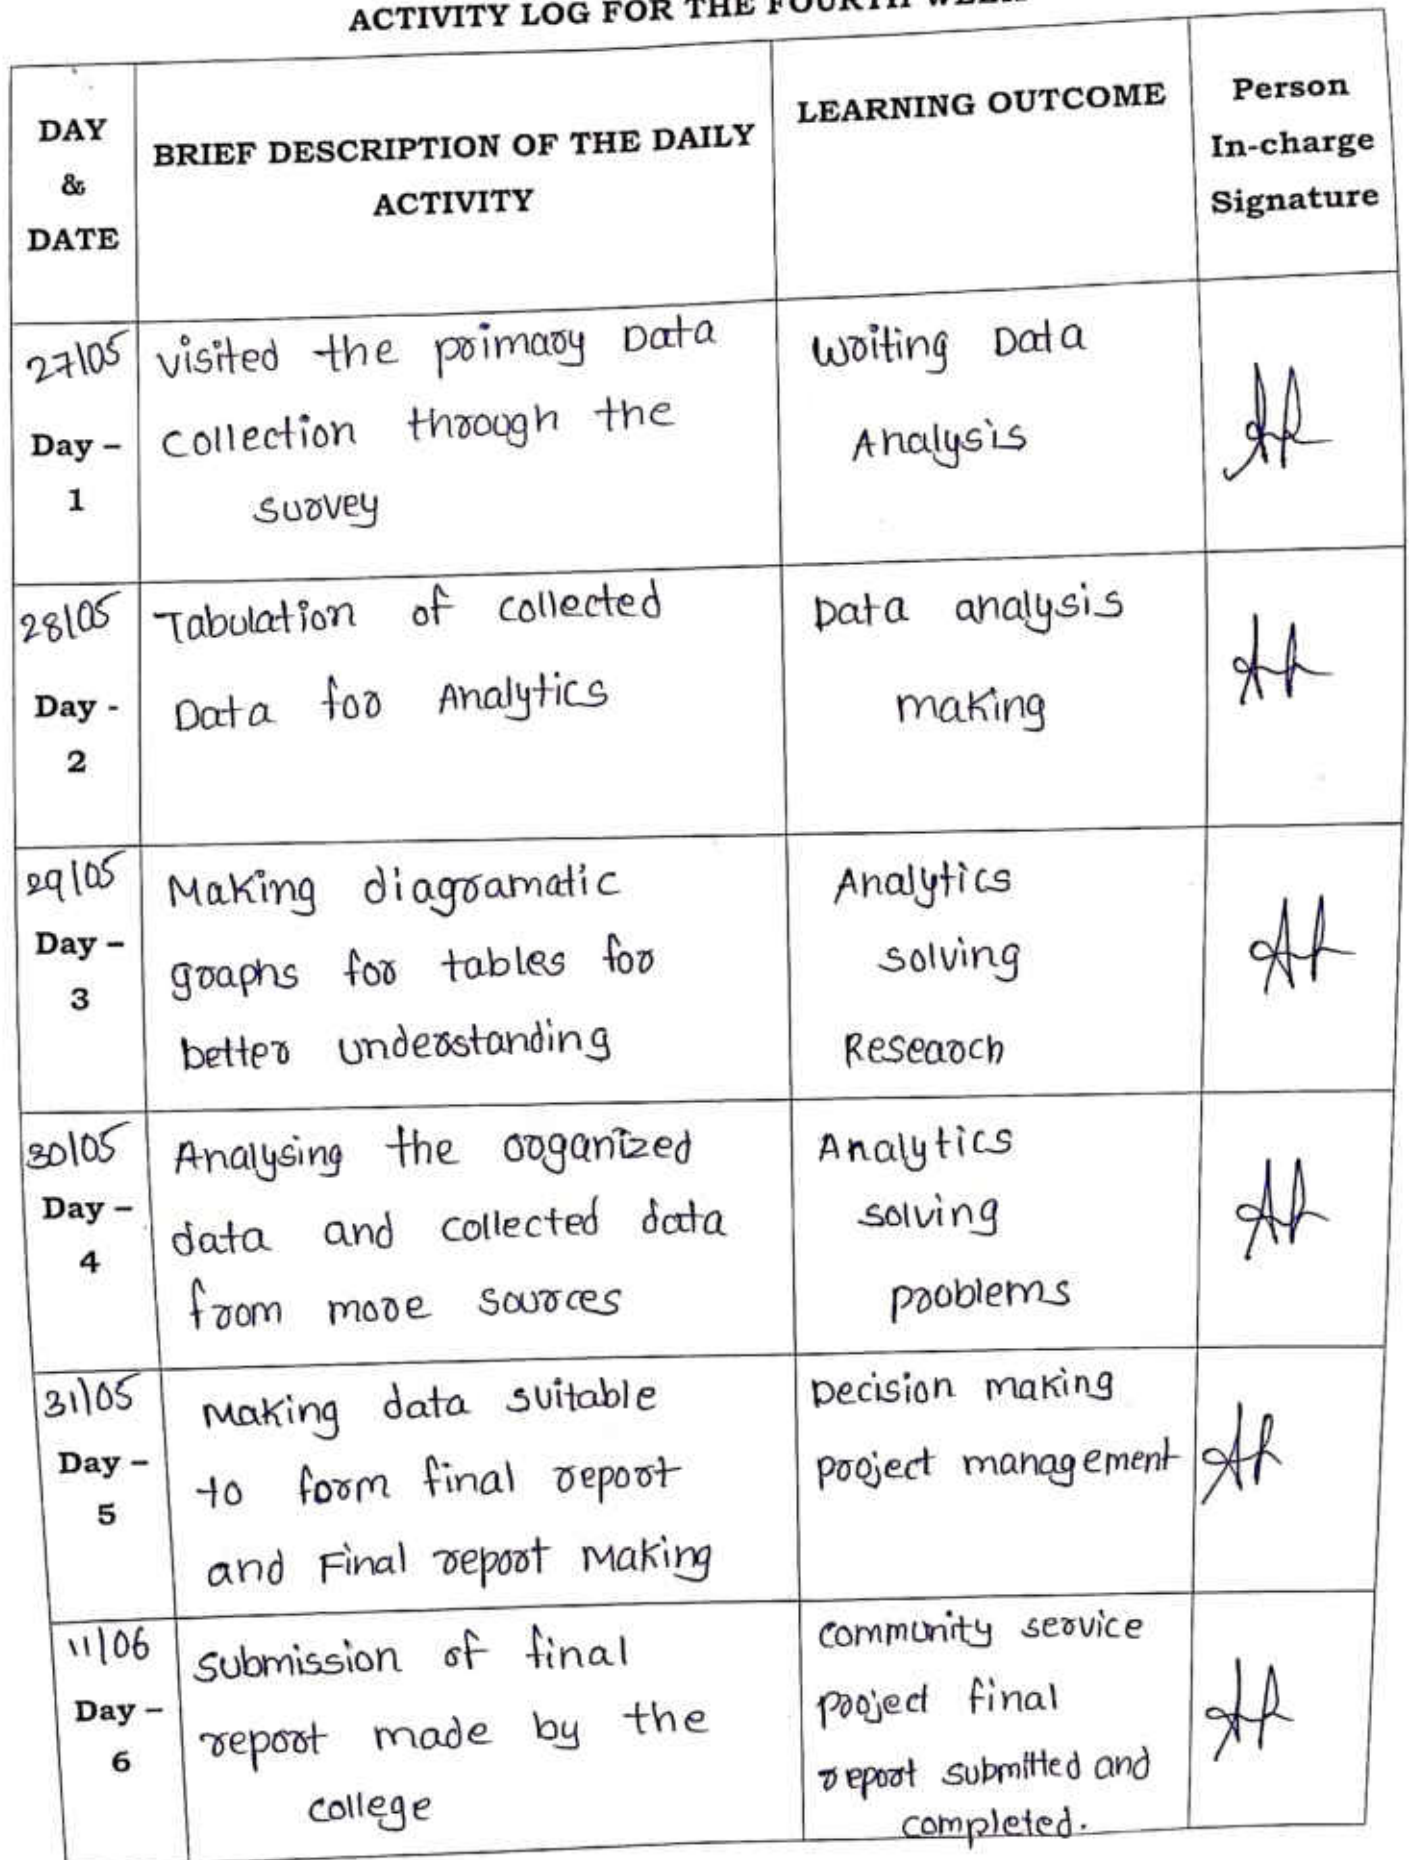 ACTIVITY LOG FOR THE FOURTH WEEK
DAY & DATE
BRIEF DESCRIPTION OF THE DAILY
ACTIVITY
LEARNING OUTCOME
Person
In-charge
Signature
27/05
Day –
1
visited the primary Data
Collection through the
survey
writing Data
Analysis
28/05
Day -
2
Tabulation of collected
Data for Analytics
Data analysis
making
29/05
Day –
3
Making diagramatic
graphs for tables for
better understanding
Analytics
solving
Research
30/05
Day –
4
Analysing the organized
data and collected data
from more sources
Analytics
solving
problems
31/05
Day –
5
Making data suitable
to form final report
and Final report Making
Decision making
project management
11/06
Day –
6
submission of final
report made by the
college
community service
project final
report submitted and
completed.